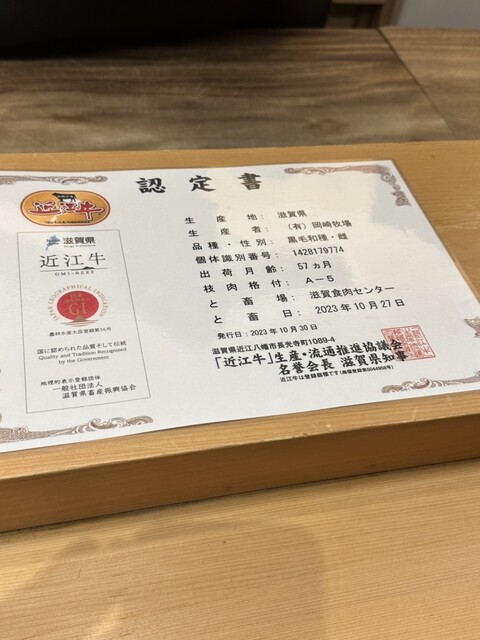 認定書
近江牛
滋賀県
近江牛
OMI-BEEF
JAPAN GEOGRAPHICAL INDICATION
GI
農林水産大臣登録第56号
国に認められた品質そして伝統
Quality and Tradition Recognized
by the Government
地理的表示登録団体
一般社団法人
滋賀県畜産振興協会
生産地：滋賀県
生産者：（有）岡崎牧場
品種・性別：黒毛和種・雌
個体識別番号：1428179774
出荷月齢：57ヵ月
枝肉格付：A－5
と畜場：滋賀食肉センター
と畜日：2023年10月27日
発行日：2023年10月30日
滋賀県近江八幡市長光寺町1089-4
「近江牛」生産・流通推進協議会
名誉会長 滋賀県知事
近江牛は登録商標です（商標登録第5044958号）